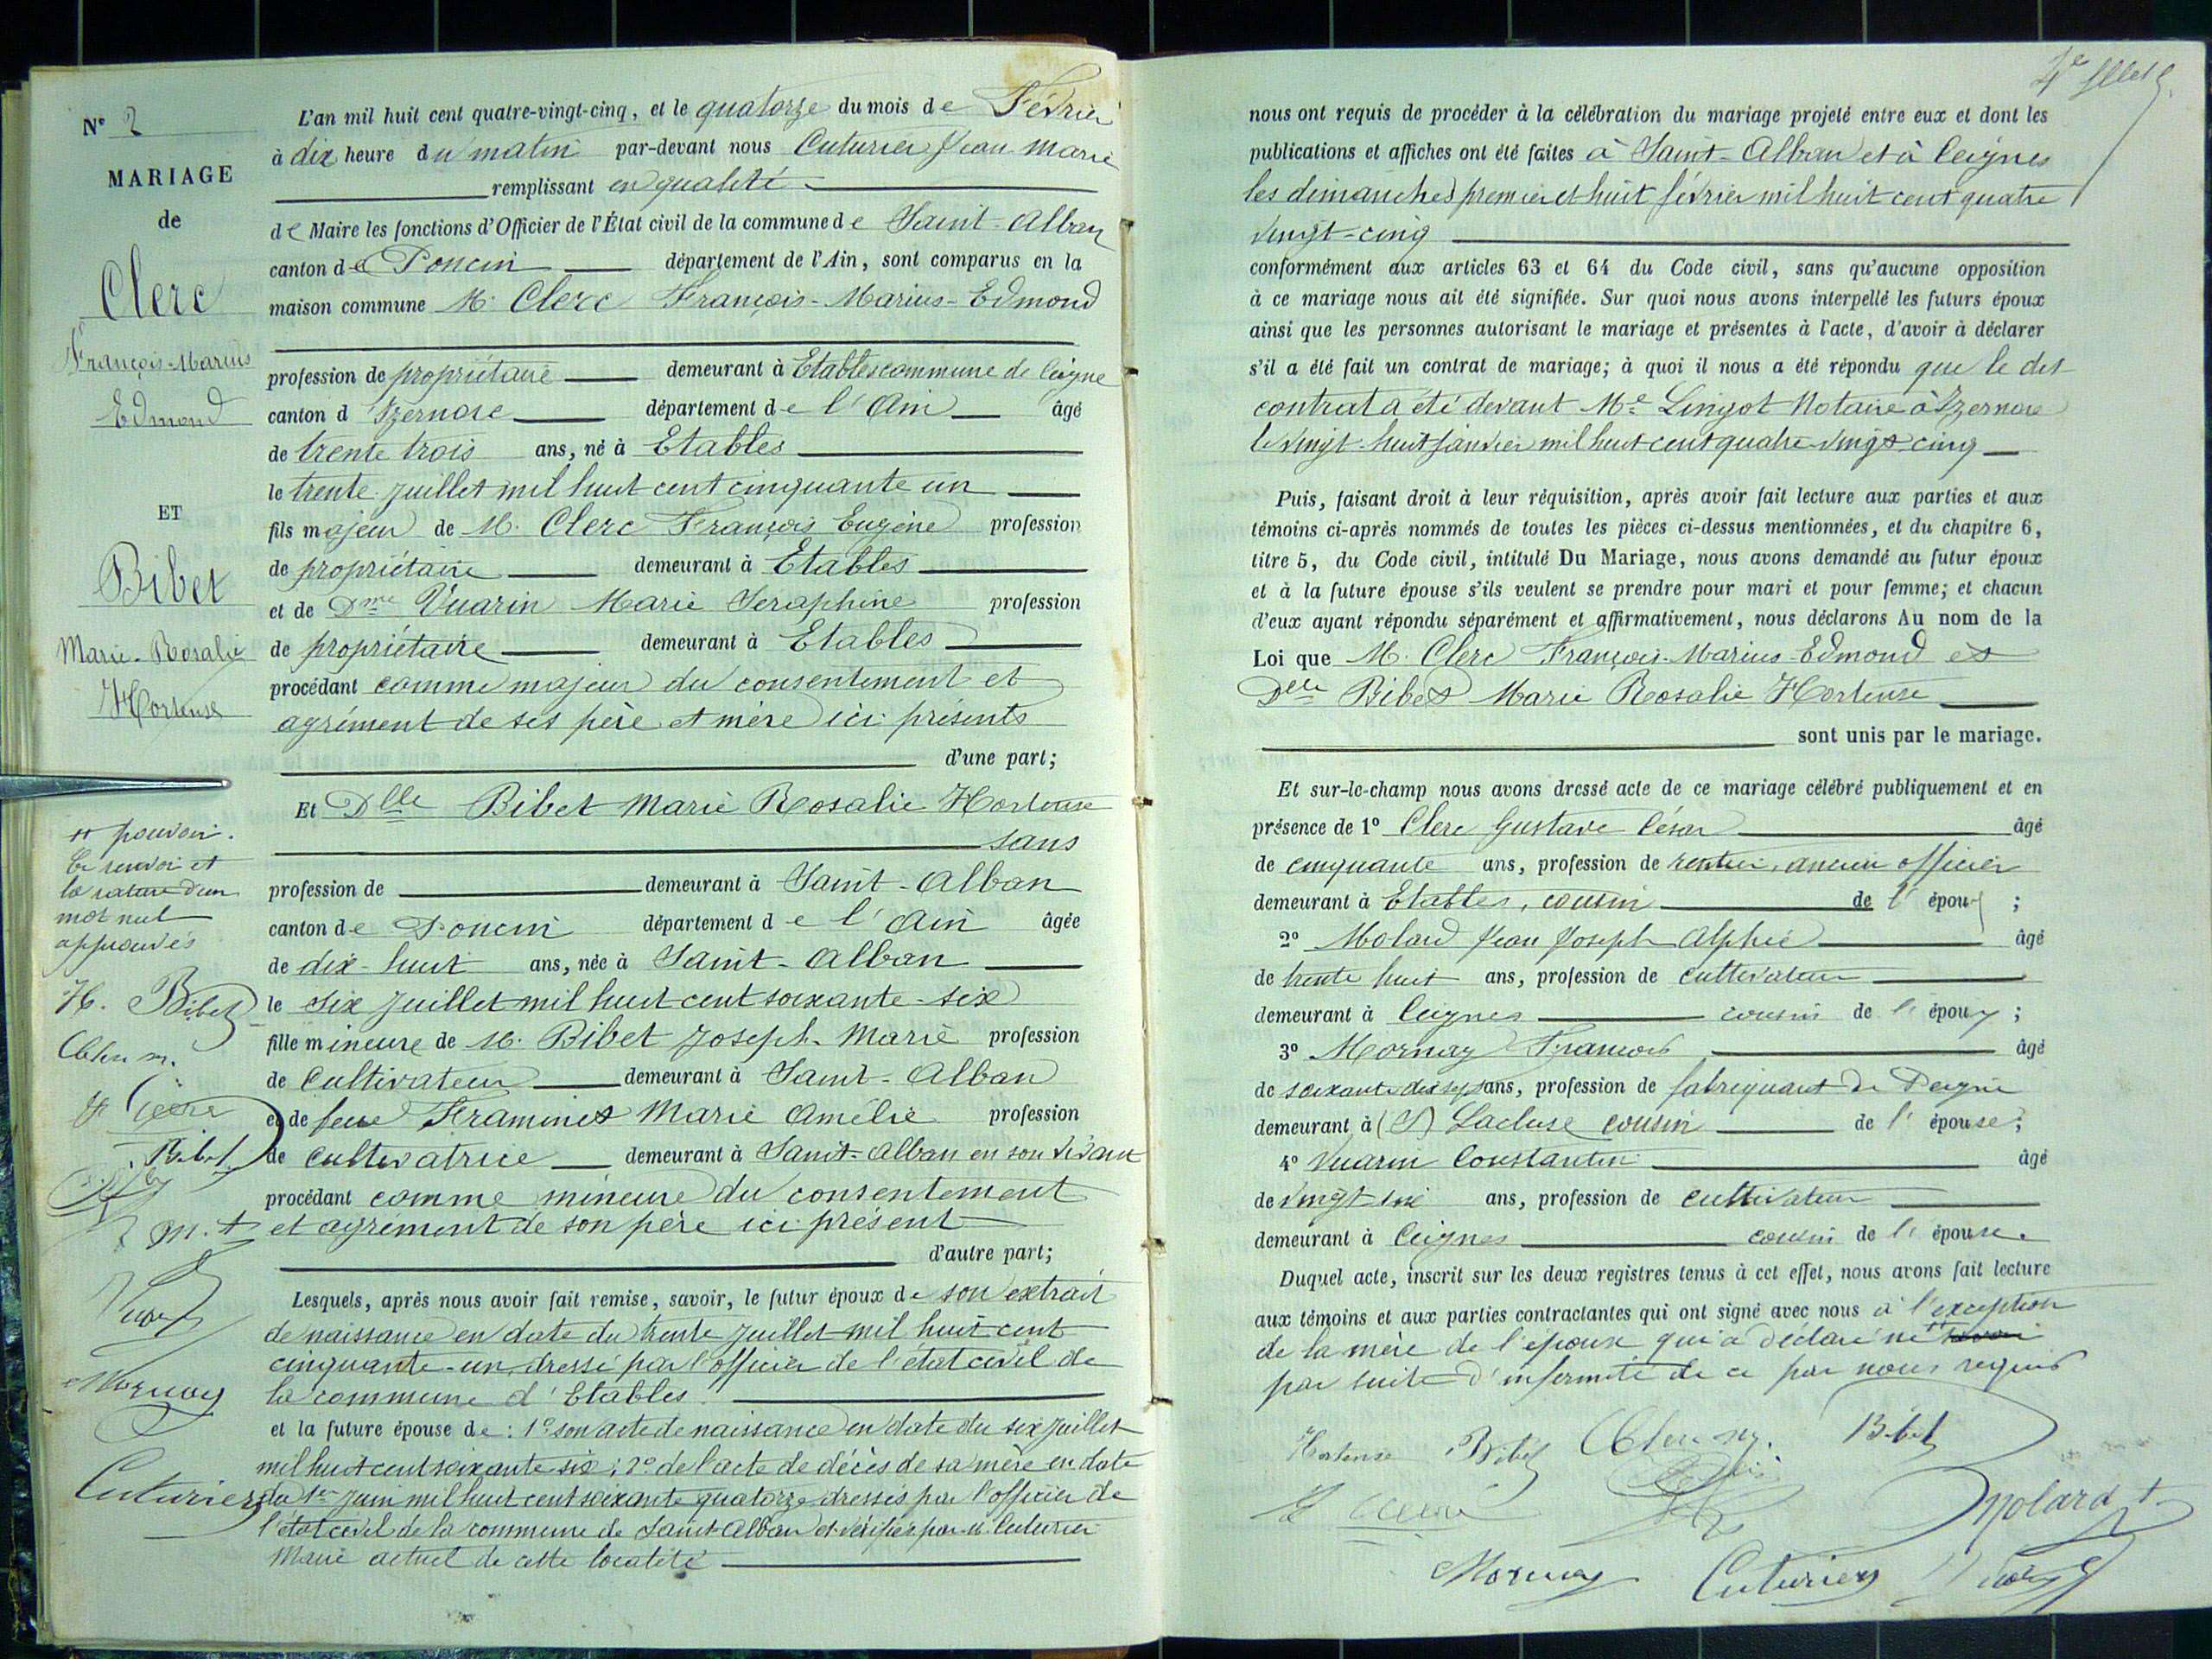 N° 2
MARIAGE
de
Clerc
François-Marius
Edmond
ET
Bibet
Marie-Rosalie
Hortense
L'an mil huit cent quatre-vingt-cinq, et le quatorze du mois de Février
à dix heure du matin par-devant nous Cuturier Jean Marie
remplissant en qualité
de Maire les fonctions d'Officier de l'État civil de la commune de Saint-Alban
canton de Poncin département de l'Ain, sont comparus en la
maison commune M. Clerc François-Marius-Edmond
profession de propriétaire demeurant à Etables commune de Ceigne
canton d'Izernore département de l'Ain âgé
de trente trois ans, né à Etables
le trente juillet mil huit cent cinquante un
fils majeur de M. Clerc François Eugène profession
de propriétaire demeurant à Etables
et de Dme Vuarin Marie Seraphine profession
de propriétaire demeurant à Etables
procédant comme majeur du consentement et
agrément de ses père et mère ici présents
d'une part;
Et Dlle Bibet Marie Rosalie Hortense
sans
profession de demeurant à Saint-Alban
canton de Poncin département de l'Ain âgée
de dix-huit ans, née à Saint-Alban
le six juillet mil huit cent soixante-six
fille mineure de M. Bibet Joseph-Marie profession
de Cultivateur demeurant à Saint-Alban
et de feue Framinet Marie Amélie profession
de Cultivatrice demeurant à Saint-Alban en son vivant
procédant comme mineure du consentement
et agrément de son père ici présent
d'autre part;
Lesquels, après nous avoir fait remise, savoir, le futur époux de son extrait
de naissance en date du trente juillet mil huit cent
cinquante-un, dressé par l'officier de l'état civil de
la commune d'Etables
et la future épouse de : 1° son acte de naissance en date du six juillet
mil huit cent soixante six; 2° de l'acte de décès de sa mère en date
du 1er juin mil huit cent soixante quatorze dressés par l'officier de
l'état civil de la commune de Saint-Alban et vérifiés par M. Cuturier
Maire actuel de cette localité
pouvoir.
Ce renvoi et
la rature d'un
mot nul
approuvés
H. Bibet
Clerc m.
Bibet
Mornay
Cuturier
4e
nous ont requis de procéder à la célébration du mariage projeté entre eux et dont les
publications et affiches ont été faites à Saint-Alban et à Ceignes
les dimanches premier et huit février mil huit cent quatre
vingt-cinq
conformément aux articles 63 et 64 du Code civil, sans qu'aucune opposition
à ce mariage nous ait été signifiée. Sur quoi nous avons interpellé les futurs époux
ainsi que les personnes autorisant le mariage et présentes à l'acte, d'avoir à déclarer
s'il a été fait un contrat de mariage; à quoi il nous a été répondu que le dit
contrat a été devant Me Lingot Notaire à Izernore
le vingt-huit janvier mil huit cent quatre-vingt-cinq
Puis, faisant droit à leur réquisition, après avoir fait lecture aux parties et aux
témoins ci-après nommés de toutes les pièces ci-dessus mentionnées, et du chapitre 6,
titre 5, du Code civil, intitulé Du Mariage, nous avons demandé au futur époux
et à la future épouse s'ils veulent se prendre pour mari et pour femme; et chacun
d'eux ayant répondu séparément et affirmativement, nous déclarons Au nom de la
Loi que M. Clerc François-Marius-Edmond et
Delle Bibet Marie Rosalie Hortense
sont unis par le mariage.
Et sur-le-champ nous avons dressé acte de ce mariage célébré publiquement et en
présence de 1° Clerc Gustave César âgé
de cinquante ans, profession de rentier, ancien officier
demeurant à Etables, cousin de l'époux ;
2° Molard Jean Joseph Alphée âgé
de trente huit ans, profession de cultivateur
demeurant à Ceignes cousin de l'époux ;
3° Mornay François âgé
de soixante dix sept ans, profession de fabriquant de Peigne
demeurant à (S) Lacluse cousin de l'épouse;
4° Vuarin Constantin âgé
de vingt six ans, profession de cultivateur
demeurant à Ceignes cousin de l'épouse.
Duquel acte, inscrit sur les deux registres tenus à cet effet, nous avons fait lecture
aux témoins et aux parties contractantes qui ont signé avec nous à l'exception
de la mère de l'époux qui a déclaré ne savoir
par suite d'infirmité de ce par nous requis
Hortense Bibet Clerc m. Bibet
Molard
Mornay Cuturier